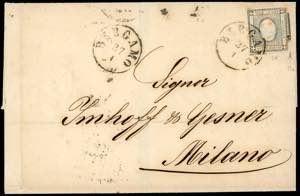 BERGAMO
27
1
BERGAMO
27
1
Signor
Imhoff & Gesner
Milano